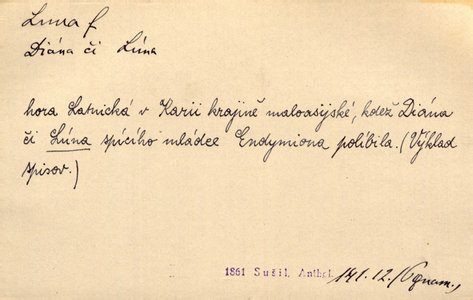 Luna f
Diána či Lúna
hora Latnická v Karii krajině maloasijské, kdež Diána
či Lúna spícího mládce Endymiona políbila. (Výklad
spisov.)
1861 Sušil. Anthol. 141.12. (Poznam.)